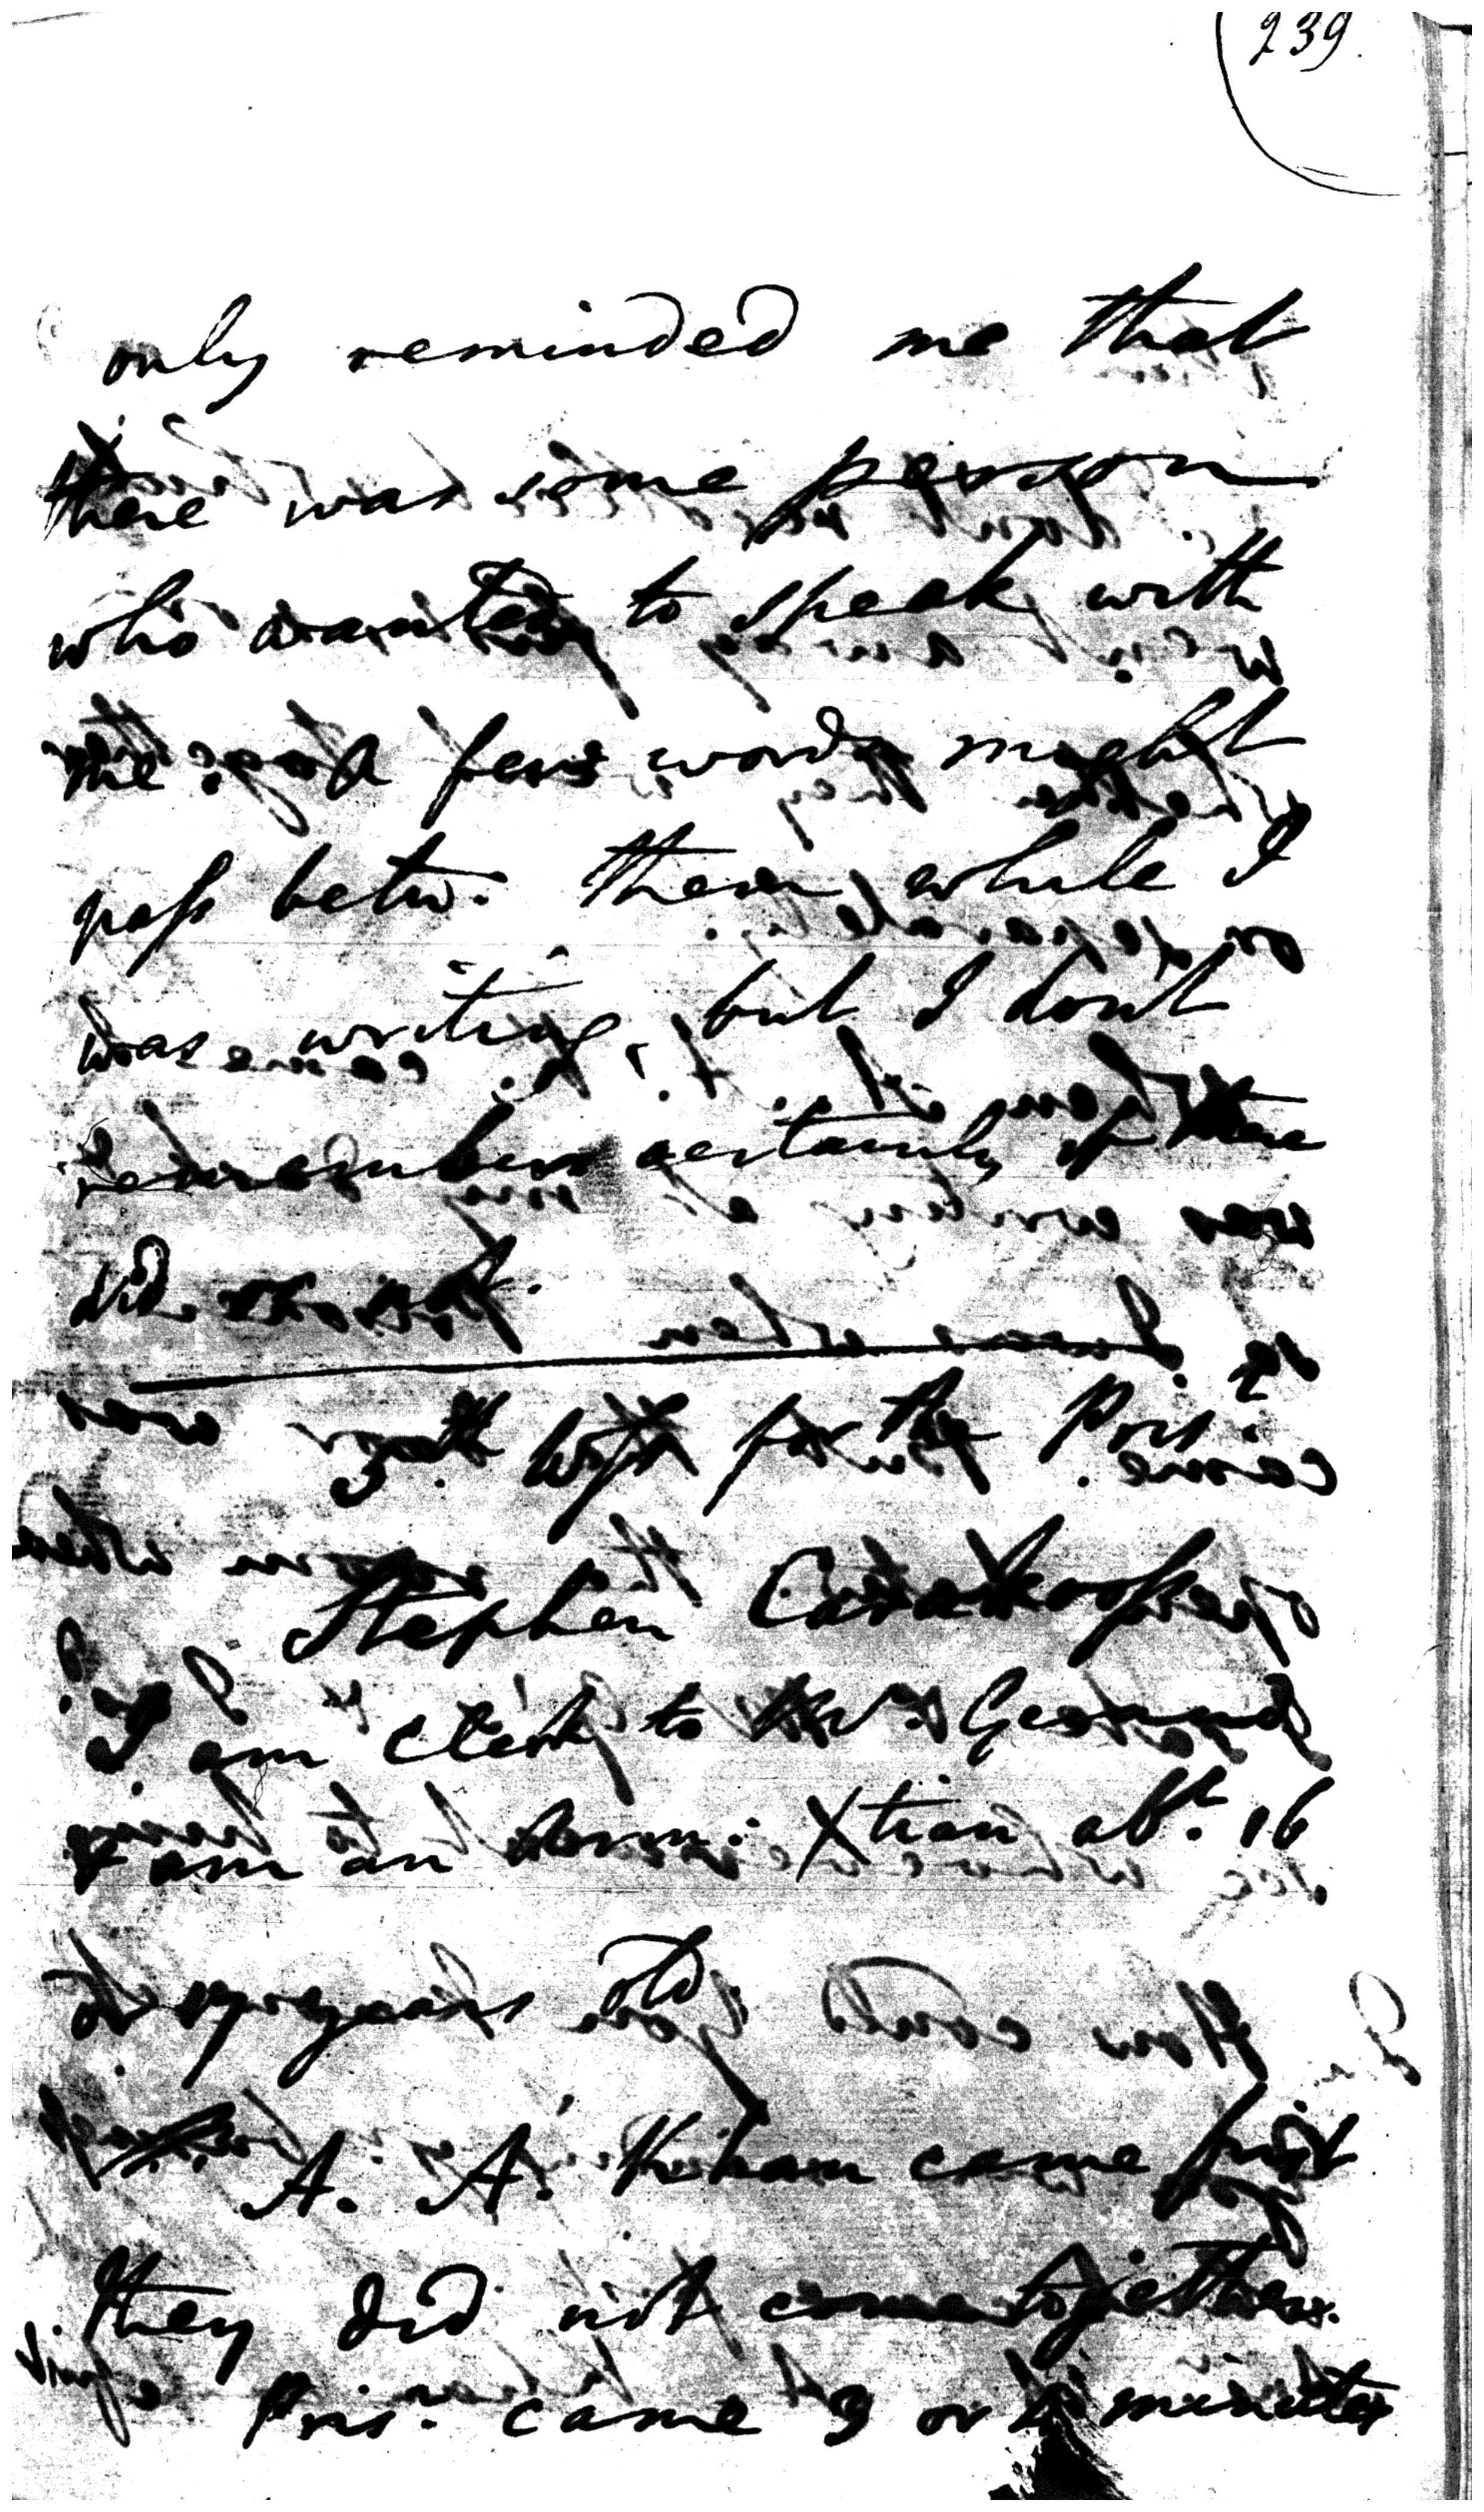 239.
only reminded me that
there was some person
who wanted to speak with
me. a few words might
pass betw. them while I
was writing, but I dont
remember certainly if there
did or not.
5th Wits for the Pris.
Stephen
I am Clerk to Mr.
& am an Arm: Xtian abt. 16
or 17 years old.
A. A. Khan came first
they did not come together.
Pris. came 3 or 4 minutes